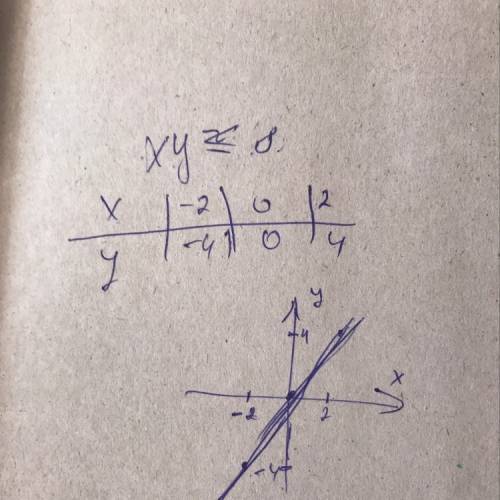 xy ≤ 8.
x | -2 | 0 | 2
y | -4 | 0 | 4
y
4
x
-2 2
-4